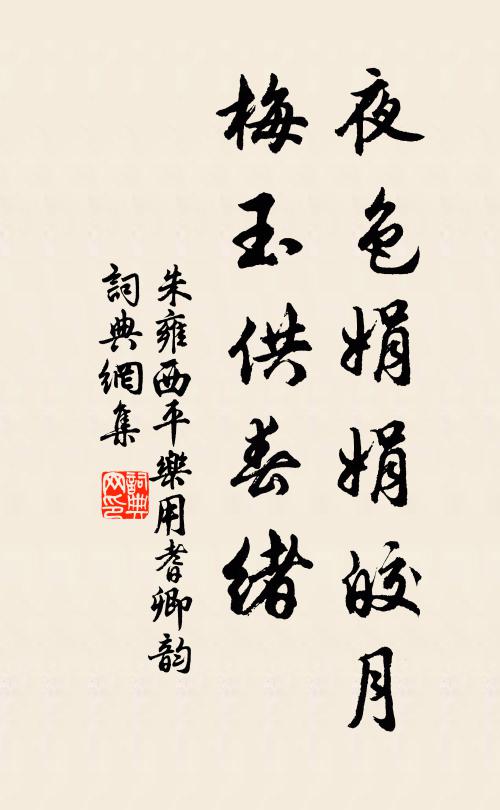 夜色娟娟皎月
梅玉供春緒
朱雍西平樂用耆卿韵
詞典網集
詞典网印